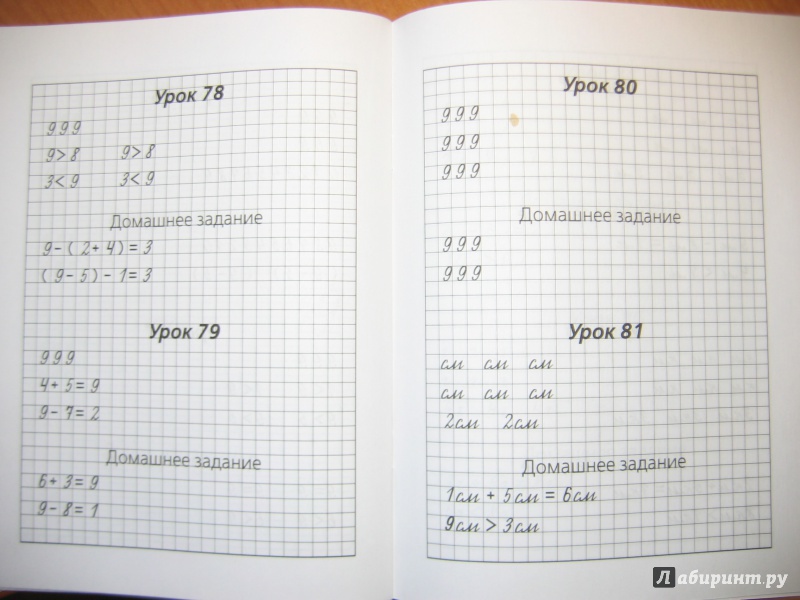 Урок 78
9 9 9
9 > 8 9 > 8
3 < 9 3 < 9
Домашнее задание
9 - ( 2 + 4 ) = 3
( 9 - 5 ) - 1 = 3
Урок 79
9 9 9
4 + 5 = 9
9 - 7 = 2
Домашнее задание
6 + 3 = 9
9 - 8 = 1
Урок 80
9 9 9
9 9 9
9 9 9
Домашнее задание
9 9 9
9 9 9
Урок 81
см см см
см см см
2см 2см
Домашнее задание
1см + 5см = 6см
9см > 3см
Лабиринт.ру